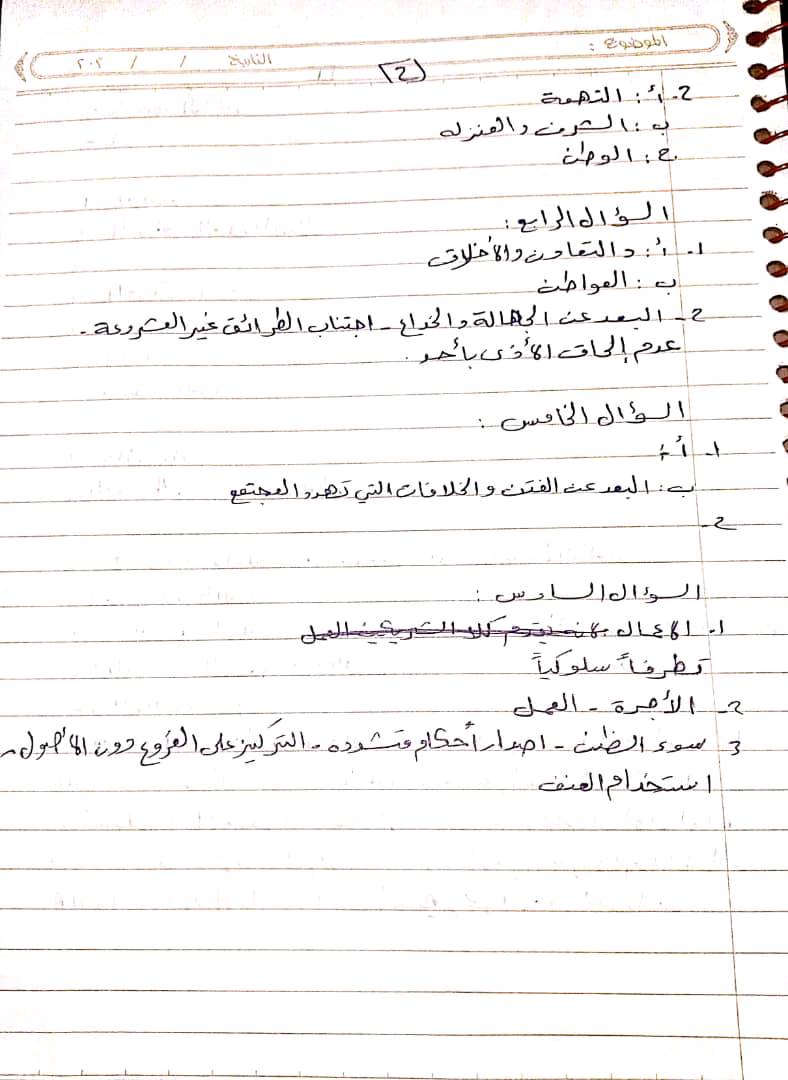 الموضوع :
التاريخ / / ٢٠٢
(2)
2. أ : التهمة
ب : الشرف والمنزله
ج : الوطن
السؤال الرابع :
1. أ : د التعاون والأخلاق
ب : المواطن
2- البعد عن الجهالة والخداع - اجتناب الطرائق غير المشروعة -
عدم إلحاق الأذى بأحد .
السؤال الخامس :
1- أ :
ب : البعد عن الفتن والخلافات التي تهدد المجتمع
2-
السؤال السادس :
1. الأعمال
تطرفاً سلوكياً
2- الأجرة - العمل
3 سوء الظن - اصدار أحكام متشدده - التركيز على الفروع دون الأصول -
استخدام العنف